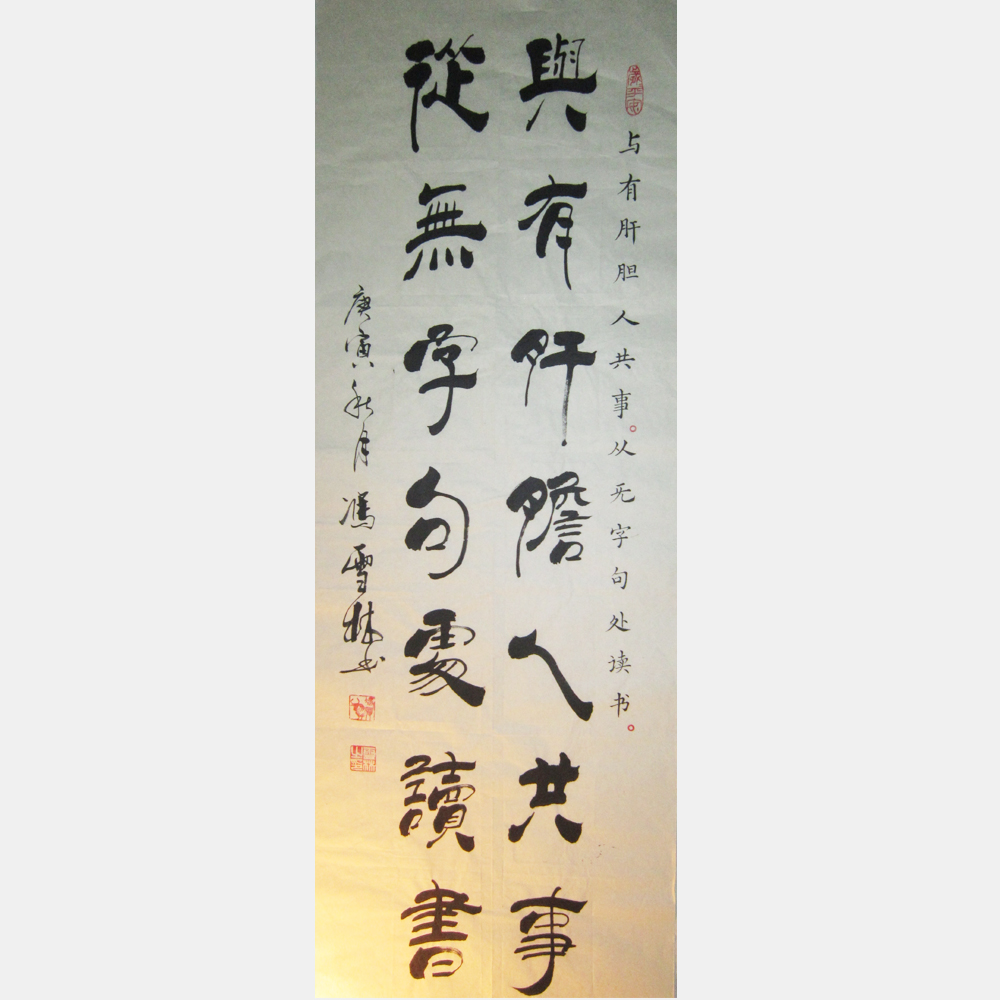 与有肝胆人共事。从无字句处读书。
與有肝膽人共事
從無字句處讀書
庚寅秋月馮雪林书